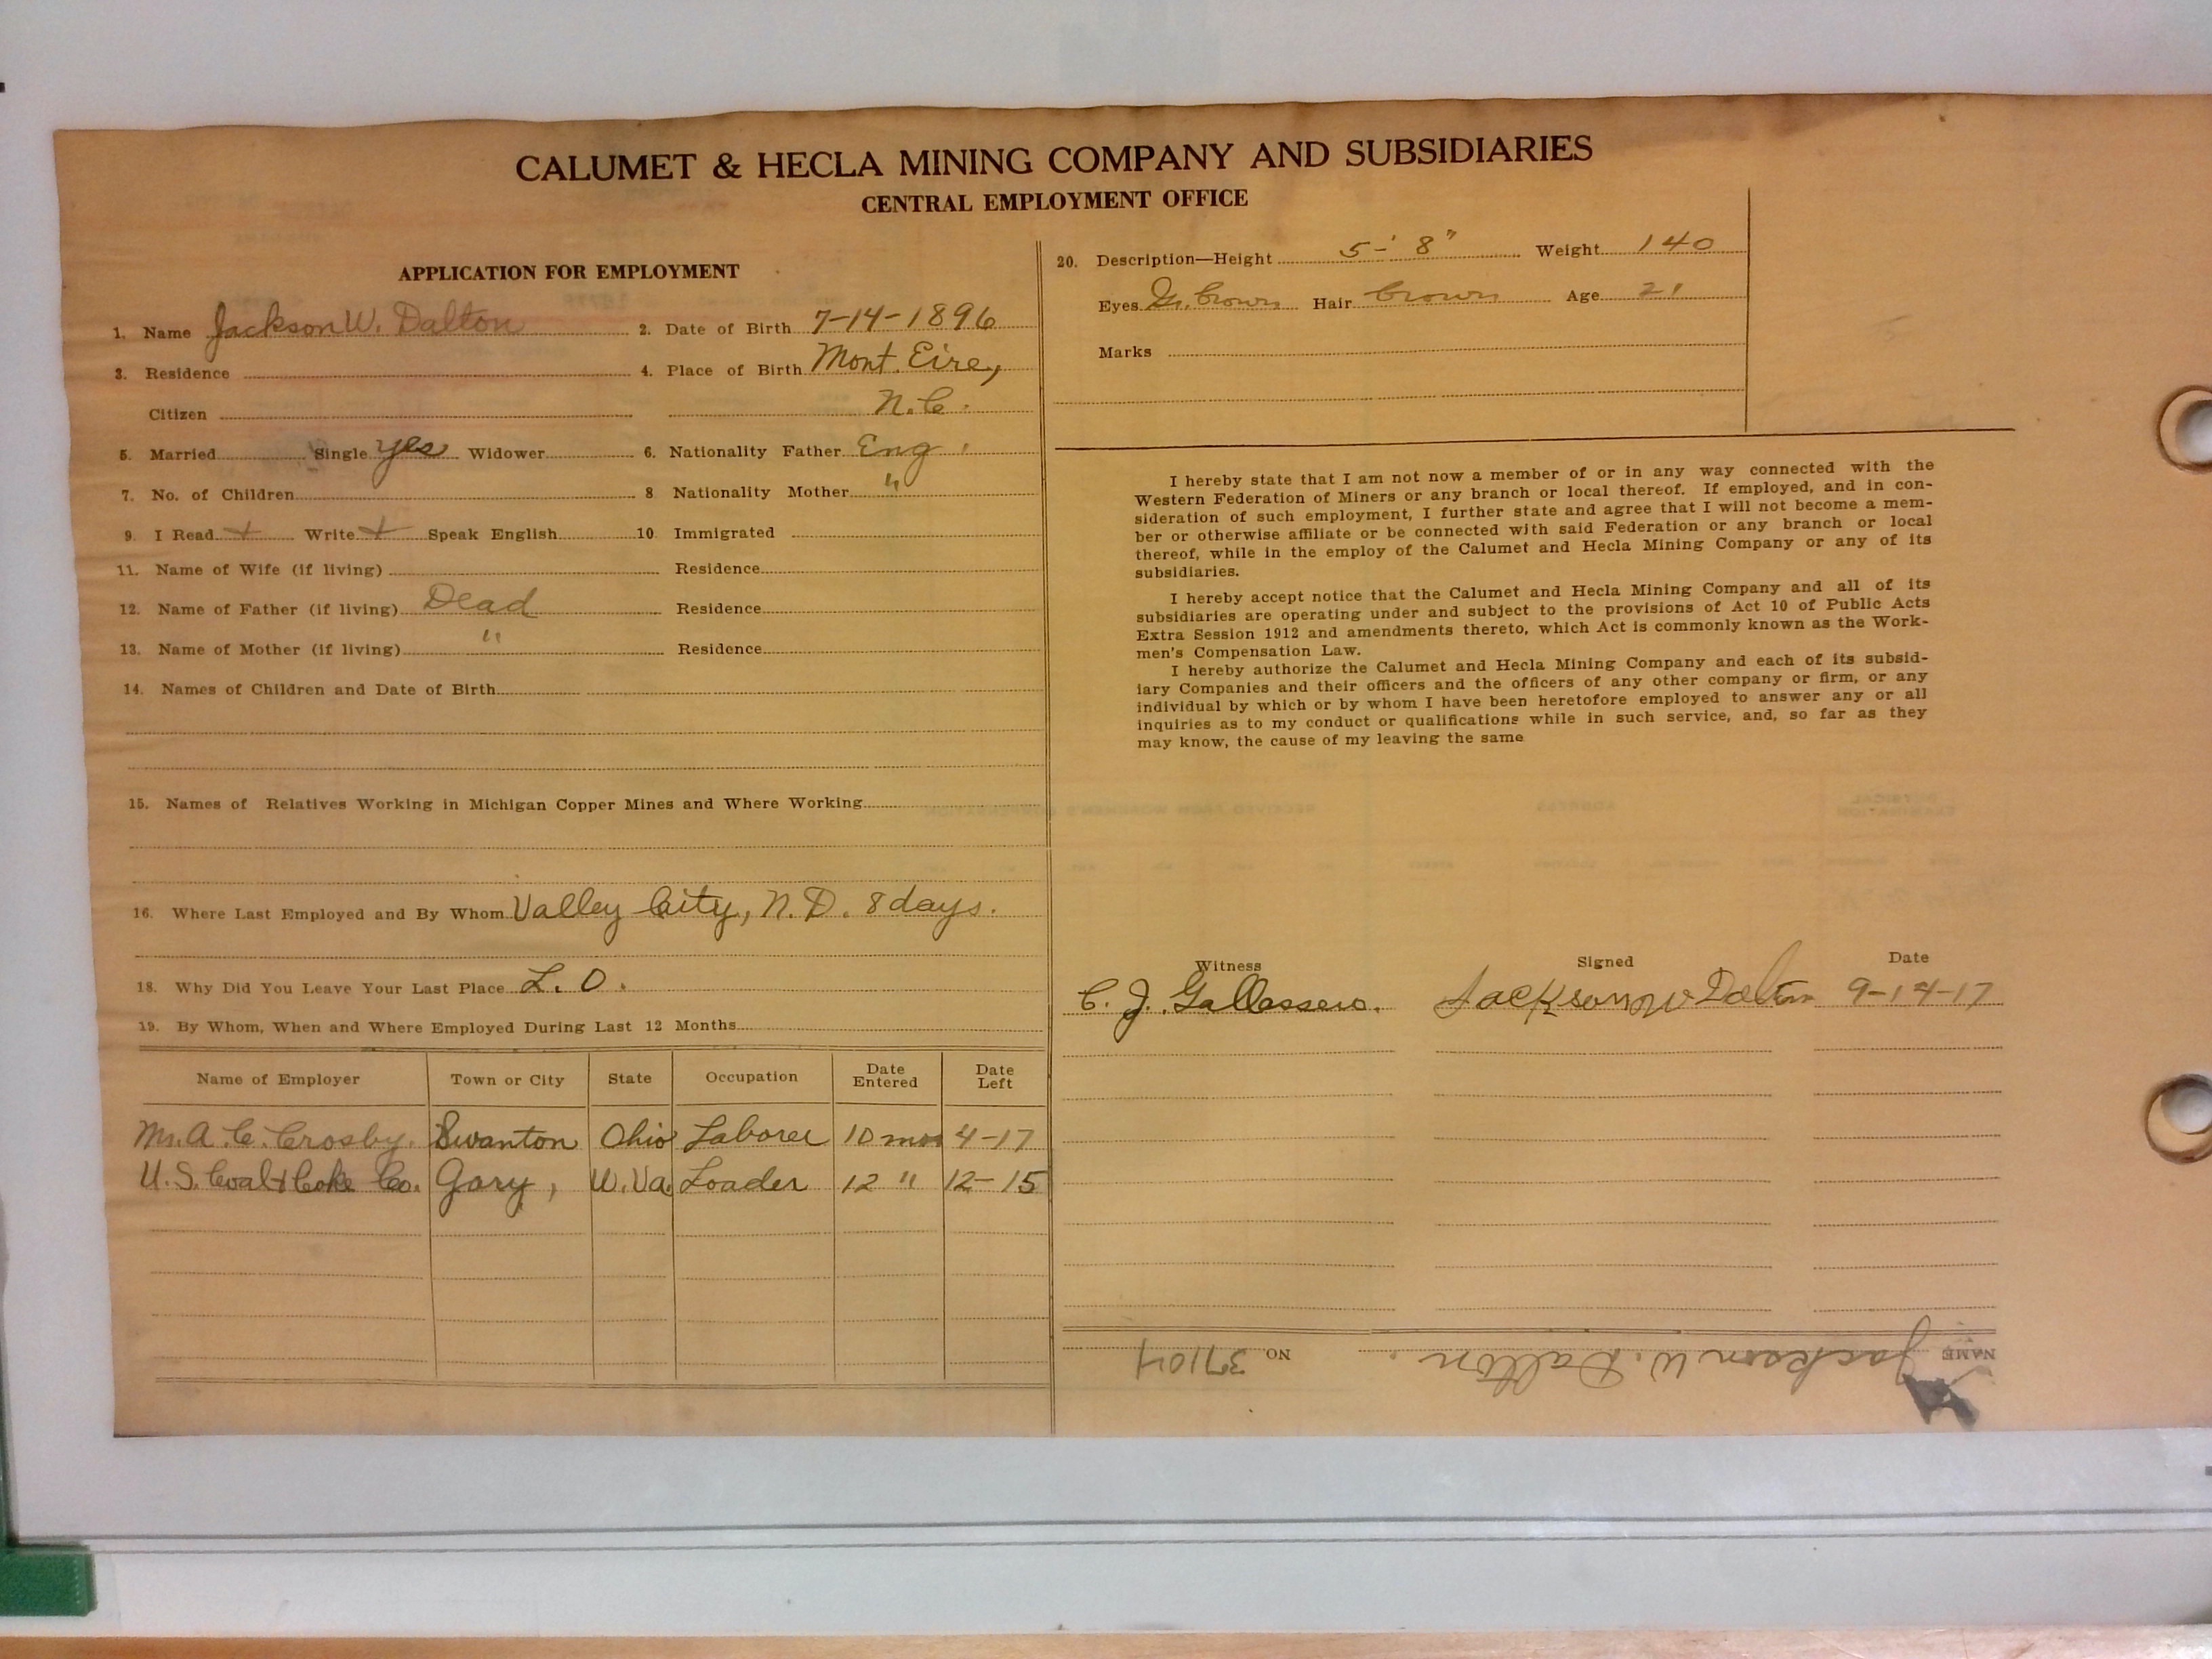 CALUMET & HECLA MINING COMPANY AND SUBSIDIARIES
CENTRAL EMPLOYMENT OFFICE
APPLICATION FOR EMPLOYMENT
1. Name Jackson W. Dalton 2. Date of Birth 7-14-1896
3. Residence 4. Place of Birth Mont. Eire,
Citizen N.C.
5. Married Single yes Widower 6. Nationality Father Eng.
7. No. of Children 8 Nationality Mother "
9. I Read + Write + Speak English 10. Immigrated
11. Name of Wife (if living) Residence
12. Name of Father (if living) Dead Residence
13. Name of Mother (if living) " Residence
14. Names of Children and Date of Birth
15. Names of Relatives Working in Michigan Copper Mines and Where Working
16. Where Last Employed and By Whom Valley City, N.D. 8 days.
18. Why Did You Leave Your Last Place L.O.
19. By Whom, When and Where Employed During Last 12 Months
Name of Employer Town or City State Occupation Date Entered Date Left
Mr. A. C. Crosby. Swanton Ohio Laborer 10 mos 4-17
U.S. Coal & Coke Co. Gary, W.Va. Loader 12 " 12-15
20. Description—Height 5-' 8" Weight 140
Eyes brown Hair brown Age 21
Marks
I hereby state that I am not now a member of or in any way connected with the
Western Federation of Miners or any branch or local thereof. If employed, and in con-
sideration of such employment, I further state and agree that I will not become a mem-
ber or otherwise affiliate or be connected with said Federation or any branch or local
thereof, while in the employ of the Calumet and Hecla Mining Company or any of its
subsidiaries.
I hereby accept notice that the Calumet and Hecla Mining Company and all of its
subsidiaries are operating under and subject to the provisions of Act 10 of Public Acts
Extra Session 1912 and amendments thereto, which Act is commonly known as the Work-
men's Compensation Law.
I hereby authorize the Calumet and Hecla Mining Company and each of its subsid-
iary Companies and their officers and the officers of any other company or firm, or any
individual by which or by whom I have been heretofore employed to answer any or all
inquiries as to my conduct or qualifications while in such service, and, so far as they
may know, the cause of my leaving the same
Witness Signed Date
C. J. Jackson W Dalton 9-14-17
NAME Jackson W. Dalton. NO.